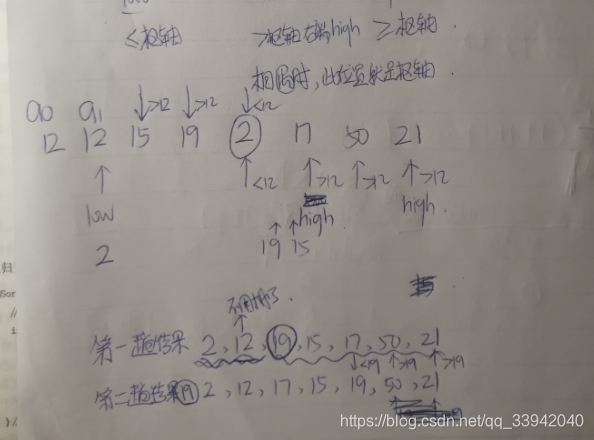 low
≤枢轴 >枢轴右端high ≥枢轴.
相同时,此位置就是枢轴.
a0 a1 ↓>12 ↓>12 ↓<12
12 12 15 19 2 17 50 21
↑ ↑<12 ↑>12 ↑>12 ↑>12
low high. high.
2 19 15
不用排了.
第一趟结果 2, 12, 19, 15, 17, 50, 21
↓<19 ↑>19 ↑>19
第二趟结果 19 2, 12, 17, 15, 19, 50, 21
归
Sor
//
https://blog.csdn.net/qq_33942040